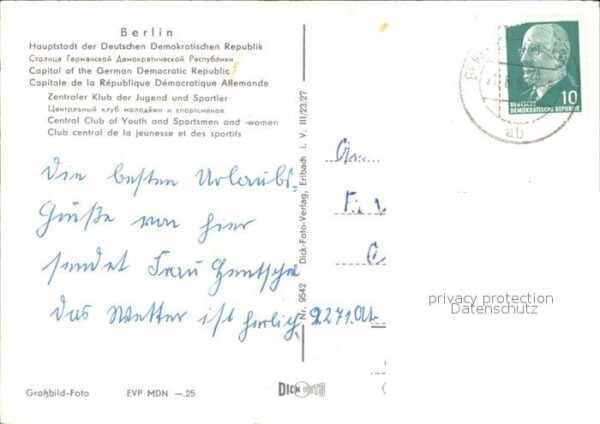 Berlin
Hauptstadt der Deutschen Demokratischen Republik
Столица Германской Демократической Республики
Capital of the German Democratic Republic
Capitale de la République Démocratique Allemande
Zentraler Klub der Jugend und Sportler
Центральный клуб молодёжи и спортсменов
Central Club of Youth and Sportsmen and -women
Club central de la jeunesse et des sportifs
Die besten Urlaubs-
Grüße von hier
sendet Frau Hentschel
das Wetter ist herlich
Großbild-Foto EVP MDN —.25
Nr. 9542 Dick-Foto-Verlag, Erlbach i. V. III/23/27
DICK FOTO
An
9271
DEUTSCHE
DEMOKRATISCHE REPUBLIK
10
BERLIN
ab
privacy protection
Datenschutz